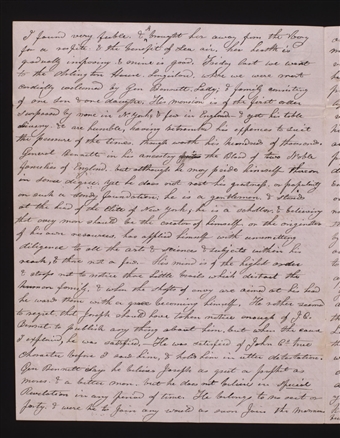 I found very feeble. & brought her away from the City
for a respite & the benefit of sea air. her health is
gradually improving & mine is good. Friday last we went
to the Arlington House, Long island. where we were most
cordially welcomed by Gen Bennett, Lady, & family consisting
of one son & one daughter. His mansion is of the first order
surpassed by none in N. York & few in England & yet his table
& are humble, having retrenched his expenses to suit
the pressure of the times. though worth his hundred of thousands.
General Bennett in his ancestry the blood of two Noble
families of England. but although he may pride himself thereon
in some degree. Yet he does not rest his greatness, or popularity
on such a sandy foundation; he is a gentleman. & stands
at the head of the state of New york; he is a scholar; & believing
that every man should be the creator of himself, or the originator
of his own resources. has applied himself with unremitting
diligence to all the arts & sciences & subjects within his
reach, & these not a few. His mind is of the highest order
& stoops not to notice those little broils which distract the
human family. & when the shafts of envy are aimed at his head
he wards them with a grace becoming himself. He rather seemed
to regret that Joseph should have taken notice enough of J. G.
Bennet to publish any thing about him, but when the cause
I explained, he was satisfied. He was satisfied of John C's true
character before I saw him, & holds him in utter detestation.
Gen Bennett says he believes Joseph as great a prophet as
moses & a better man. but he does not believe in special
Revelation in any period of time. He belongs to no sect or
party. & were he to join any would as soon join the mormons